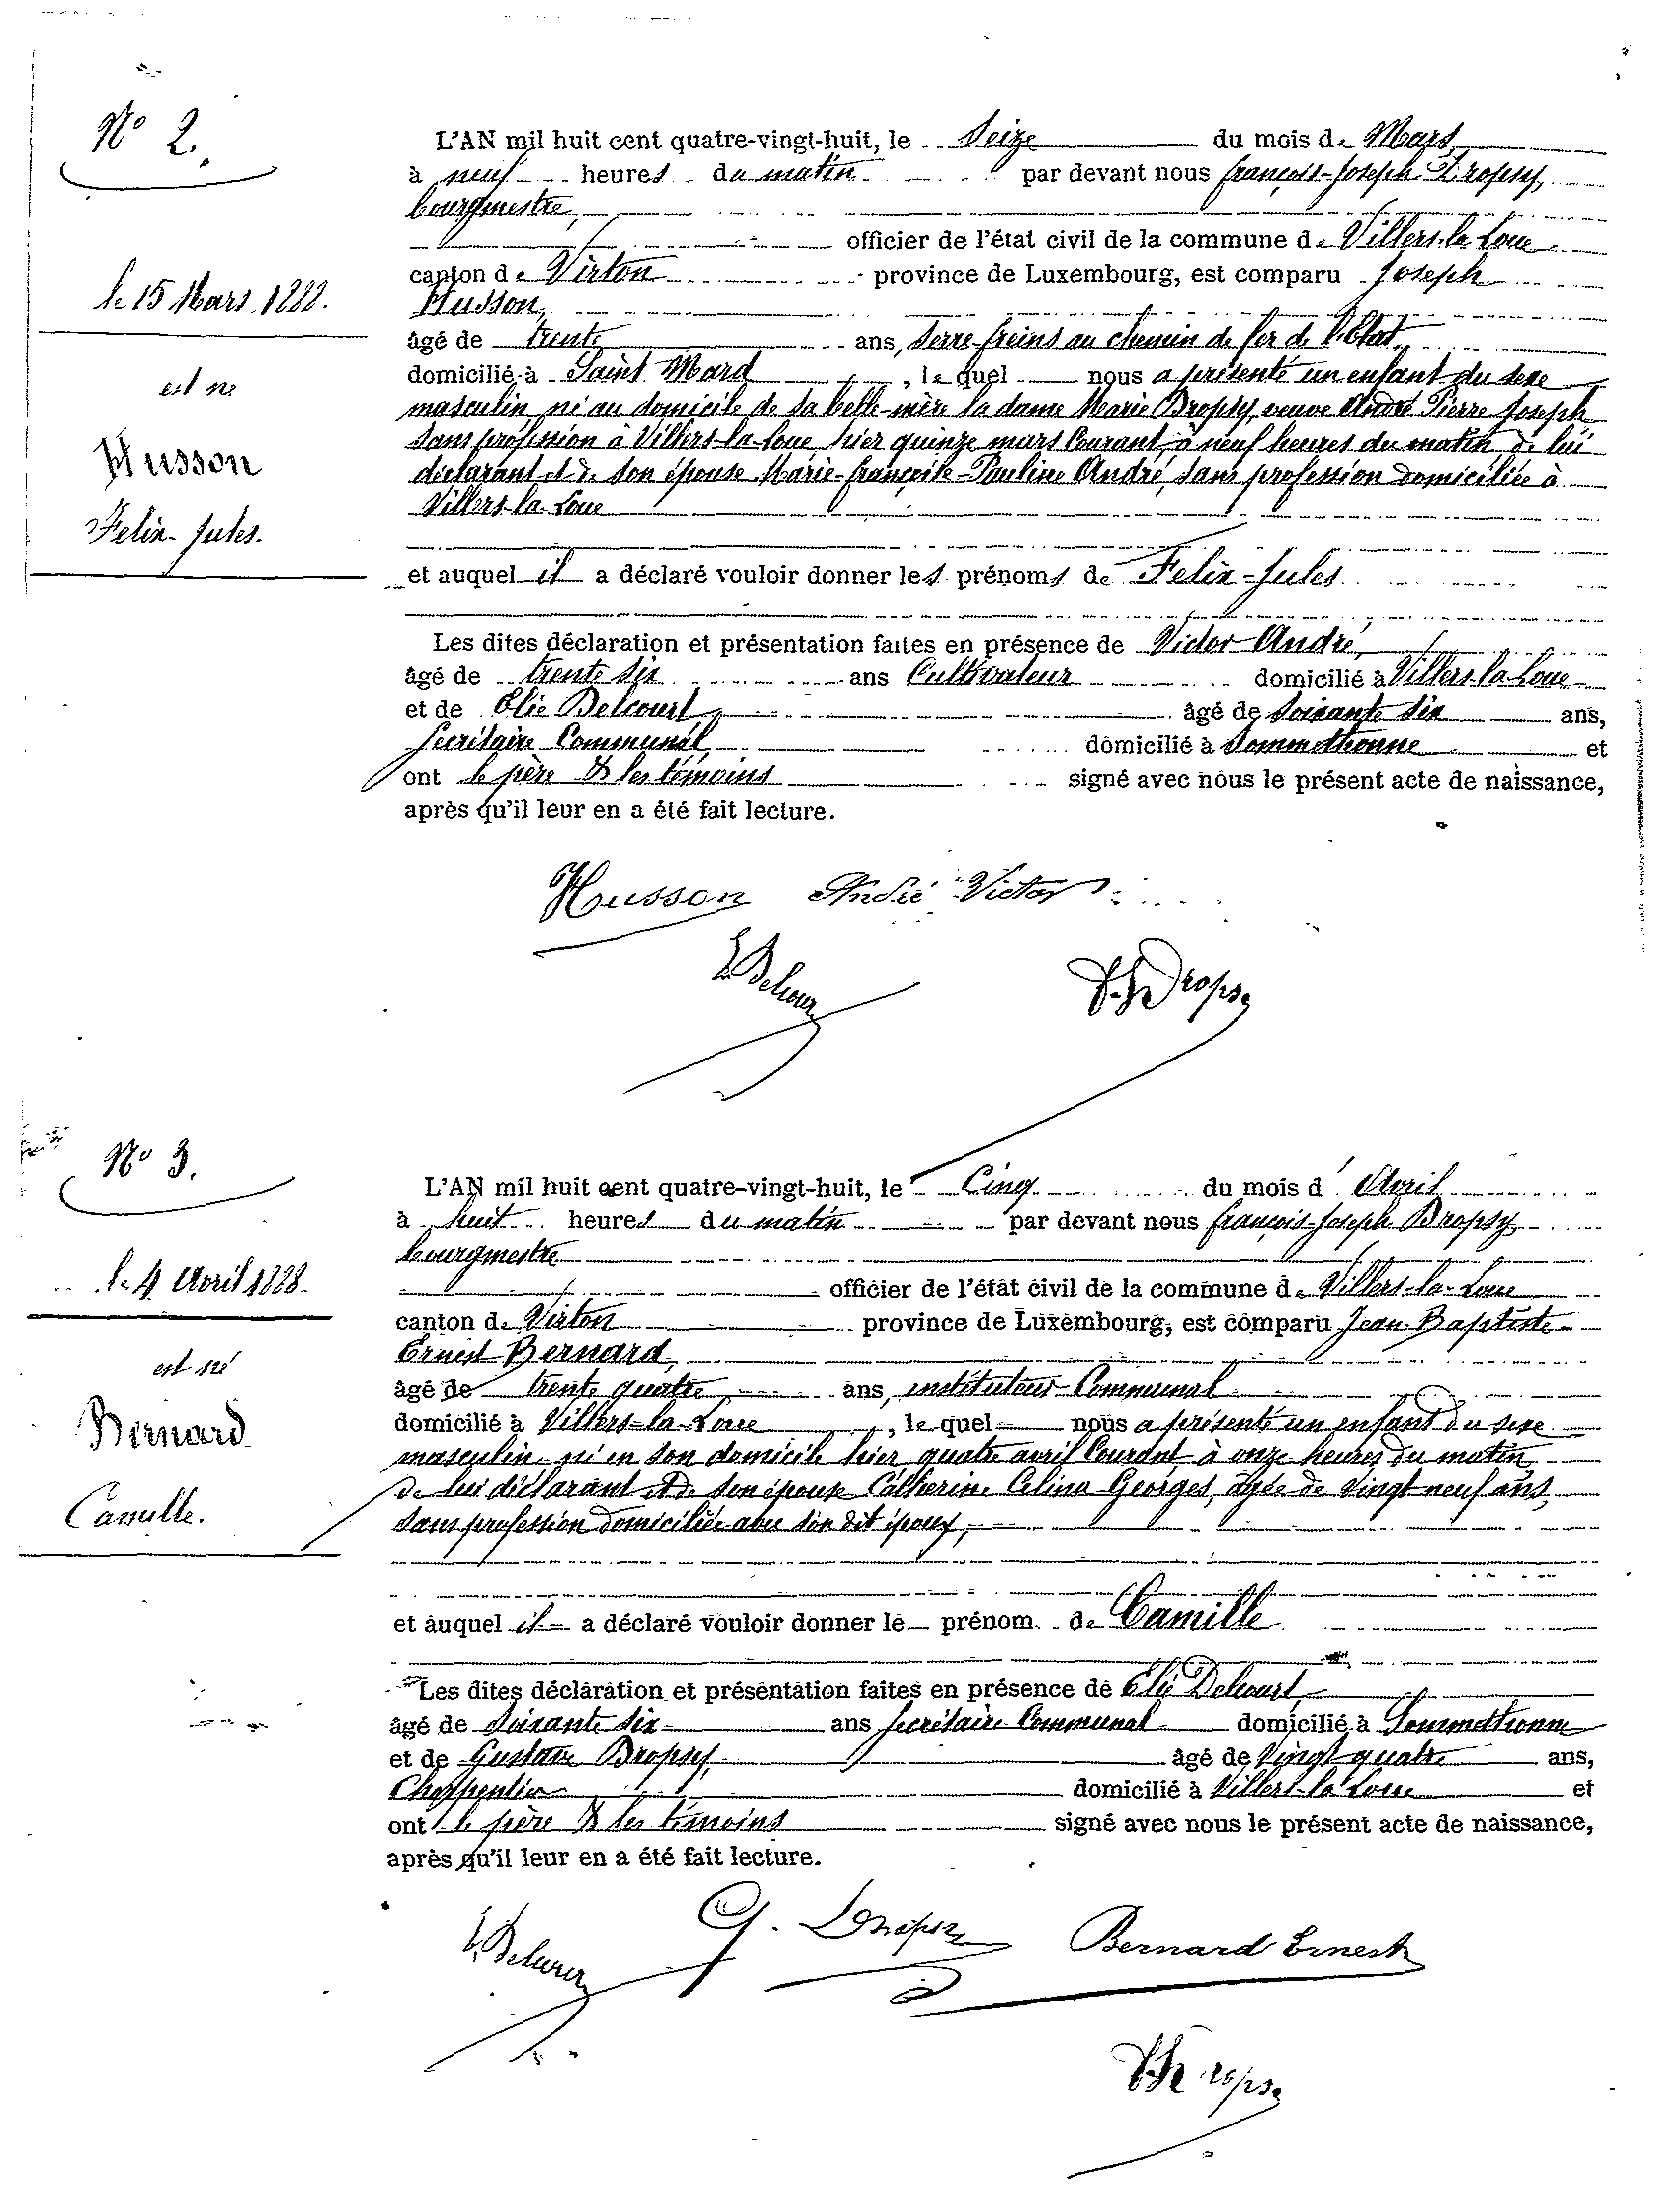 N° 2.
le 15 Mars 1888.
est né
Husson
Felix-Jules.
L'AN mil huit cent quatre-vingt-huit, le Seize du mois de Mars
à neuf heures du matin par devant nous François-Joseph Dropsy,
bourgmestre,
officier de l'état civil de la commune de Villers-la-Loue
canton de Virton province de Luxembourg, est comparu Joseph
Husson,
âgé de trente ans, Serre-freins au chemin de fer de l'Etat
domicilié à Saint Mard, lequel nous a présenté un enfant du sexe
masculin né au domicile de sa belle-mère la dame Marie Dropsy, veuve André Pierre Joseph
sans profession à Villers-la-Loue, hier quinze mars Courant, à neuf heures du matin, de lui
déclarant et de son épouse Marie-Françoise-Pauline André, sans profession domiciliée à
Villers-la-Loue
et auquel il a déclaré vouloir donner les prénoms de Felix-Jules
Les dites déclaration et présentation faites en présence de Victor André,
âgé de trente six ans Cultivateur domicilié à Villers-la-Loue
et de Elie Delcourt, âgé de Soixante six ans,
Secrétaire Communal, domicilié à Sommethonne et
ont le père & les témoins signé avec nous le présent acte de naissance,
après qu'il leur en a été fait lecture.
Husson André Victor
E Delcour
F. J. Dropsy
N° 3.
le 4 Avril 1888.
est né
Bernard
Camille.
L'AN mil huit cent quatre-vingt-huit, le Cinq du mois d' Avril
à huit heures du matin par devant nous François-Joseph Dropsy,
bourgmestre
officier de l'état civil de la commune de Villers-la-Loue
canton de Virton province de Luxembourg, est comparu Jean-Baptiste-
Ernest Bernard,
âgé de trente quatre ans, instituteur Communal
domicilié à Villers-la-Loue, lequel nous a présenté un enfant du sexe
masculin né en son domicile hier quatre avril Courant à onze heures du matin
de lui déclarant et de son épouse Catherine Celina Georges, âgée de vingt neuf ans,
sans profession domiciliée avec son dit époux,
et auquel il a déclaré vouloir donner le prénom de Camille
Les dites déclaration et présentation faites en présence de Elie Delcourt,
âgé de Soixante six ans Secrétaire Communal domicilié à Sommethonne
et de Gustave Dropsy, âgé de Vingt quatre ans,
Charpentier domicilié à Villers-la-Loue et
ont le père & les témoins signé avec nous le présent acte de naissance,
après qu'il leur en a été fait lecture.
E Delcour G. Dropsy Bernard Ernest
F. J. Dropsy